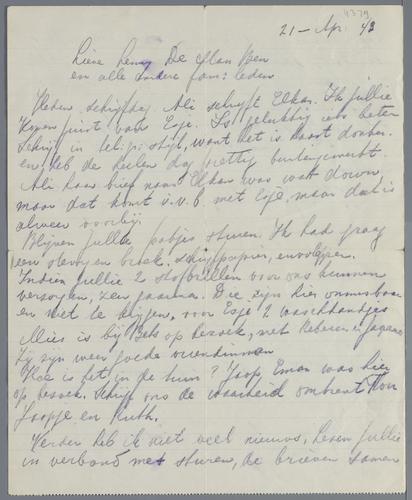 4379
21 - Apr. 43
Lieve Henny De Man Ben
en alle andere fam: leden
Heden schrijfdag. Ali schrijft Elkan. Ik jullie
Kopen juist van Esje. Is gelukkig iets beter
Schrijf in teligr. stijl, want het is haast donker.
en heb de heelen dag prettig buitengewerkt.
Ali haar bier naam Elkan was wat down,
maar dat komt v.v.b. met Esje, maar dat is
alweer voorbij.
Blijven jullie pakjes sturen. Ik had graag
een stevigen broek, schrijfpapier, enveloppen.
Indien jullie 2 stofbrillen voor ons kunnen
verzorgen, zeer gaarne. Die zijn hier onmisbaar
en niet te krijgen, voor Esje 2 washandjes
Mies is bij Bets op bezoek, met Rebecca
Zij zijn weer goede vriendinnen
Hoe is het in de huis? Joop Eman was hier
op bezoek. Schrijf ons de waarheid omtrent
Joopje en Ruth.
Verder heb ik niet veel nieuws, Leven jullie
in verband met sturen, de brieven samen